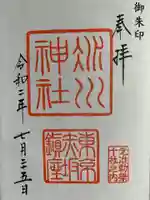 御朱印
奉拝
氷川
神社
東京
赤坂
鎮座
令和二年
七月二十五日